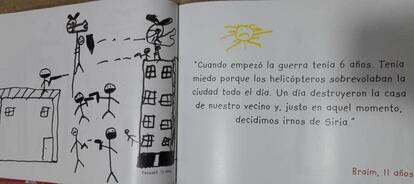 "Cuando empezó la guerra tenía 6 años. Tenía
miedo porque los helicópteros sobrevolaban la
ciudad todo el día. Un día destruyeron la casa
de nuestro vecino y, justo en aquel momento,
decidimos irnos de Siria."
Braim, 11 años